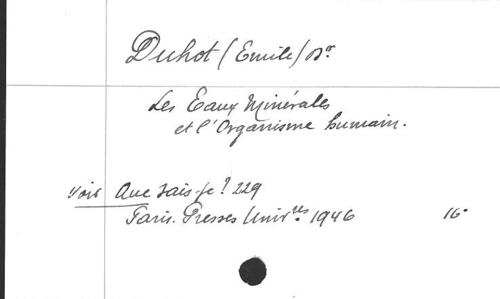 Duhot (Emile) Dr
Les Eaux Minérales
et l'Organisme humain.
Voir Que sais-je? 229
Paris. Presses Univ.res 1946 16°